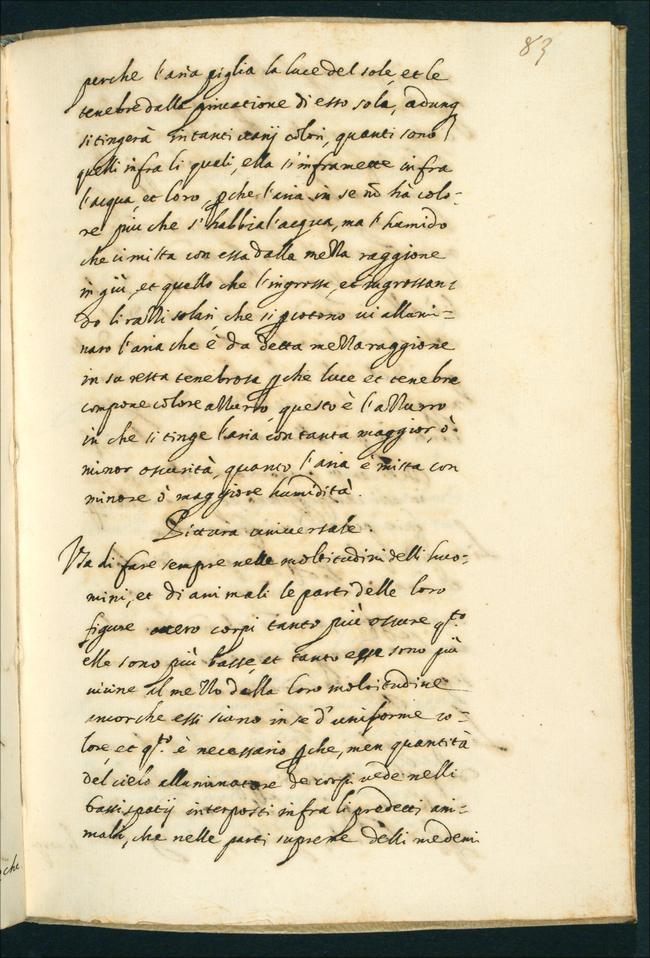 83
perche l'aria piglia la luce del sole, et le
tenebre dalla privatione di esso sole, adunq
si tingerà in tanti varij colori, quanti sono
quelli infra li quali, ella s'inframette infra
l'acqua, et loro, ꝑche l'aria in se nõ hà colo-
re più che s'habbia l'acqua, ma l'humido
che si mista con essa dalla mezza raggione
in giù, et quello che l'ingrossa, et ingrossan-
do li razzi solari, che si ꝑcotono vi allumi-
nano l'aria che è da detta mezza raggione
in su resta tenebrosa ꝑche luce et tenebre
compone colore azzurro questo è l'azzurro
in che si tinge l'aria con tanta maggior, ò
minor oscurità, quanto l'aria è mista con
minore ò maggiore humidità.
Pittura universale.
Usa di fare sempre nelle moltitudini delli huo-
mini, et di animali le parti delle loro
figure overo corpi tanto più oscure q.to
elle sono più basse, et tanto esse sono più
vicine al mezzo della loro moltitudine
ancorche essi siano in se d'uniforme co-
lore, et q.to è necessario ꝑche, men quantità
del cielo alluminatore de corpi vede nelli
bassi spatij interposti infra li predetti ani-
mali, che nelle parti supreme delli medemi
che